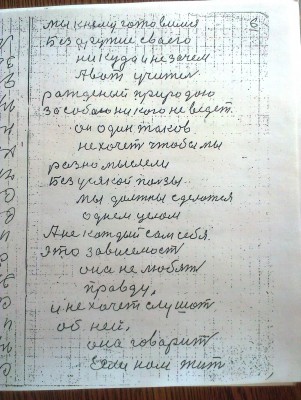 мы к нему готовимся
6
Без другие своего
никуда и не зачем
А вот учител
рожденый природою
За собаю никого не ведет.
он один таков
не хочет чтобы мы
разно мыслели
Без усякой ползы
мы должны сделатся
однем целом
А не каждый сам себя.
это зависемост
она не любят
правду,
и не хочет слушат
об ней,
она говарит
Если ном жит